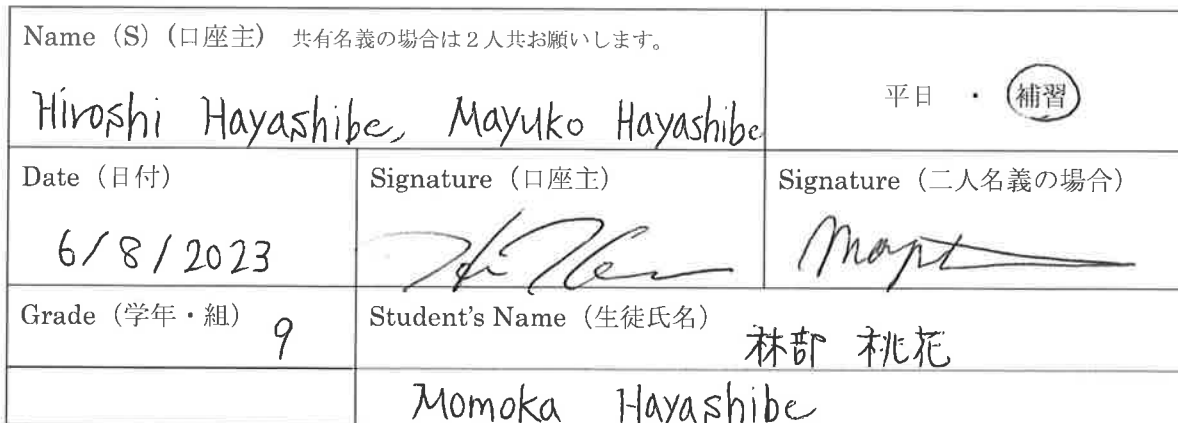 Name（S）(口座主) 共有名義の場合は２人共お願いします。
Hiroshi Hayashibe, Mayuko Hayashibe
平日 ・ 補習
Date（日付）
6/8/2023
Signature（口座主）
Signature（二人名義の場合）
Grade（学年・組） 9
Student's Name（生徒氏名）
林部 桃花
Momoka Hayashibe